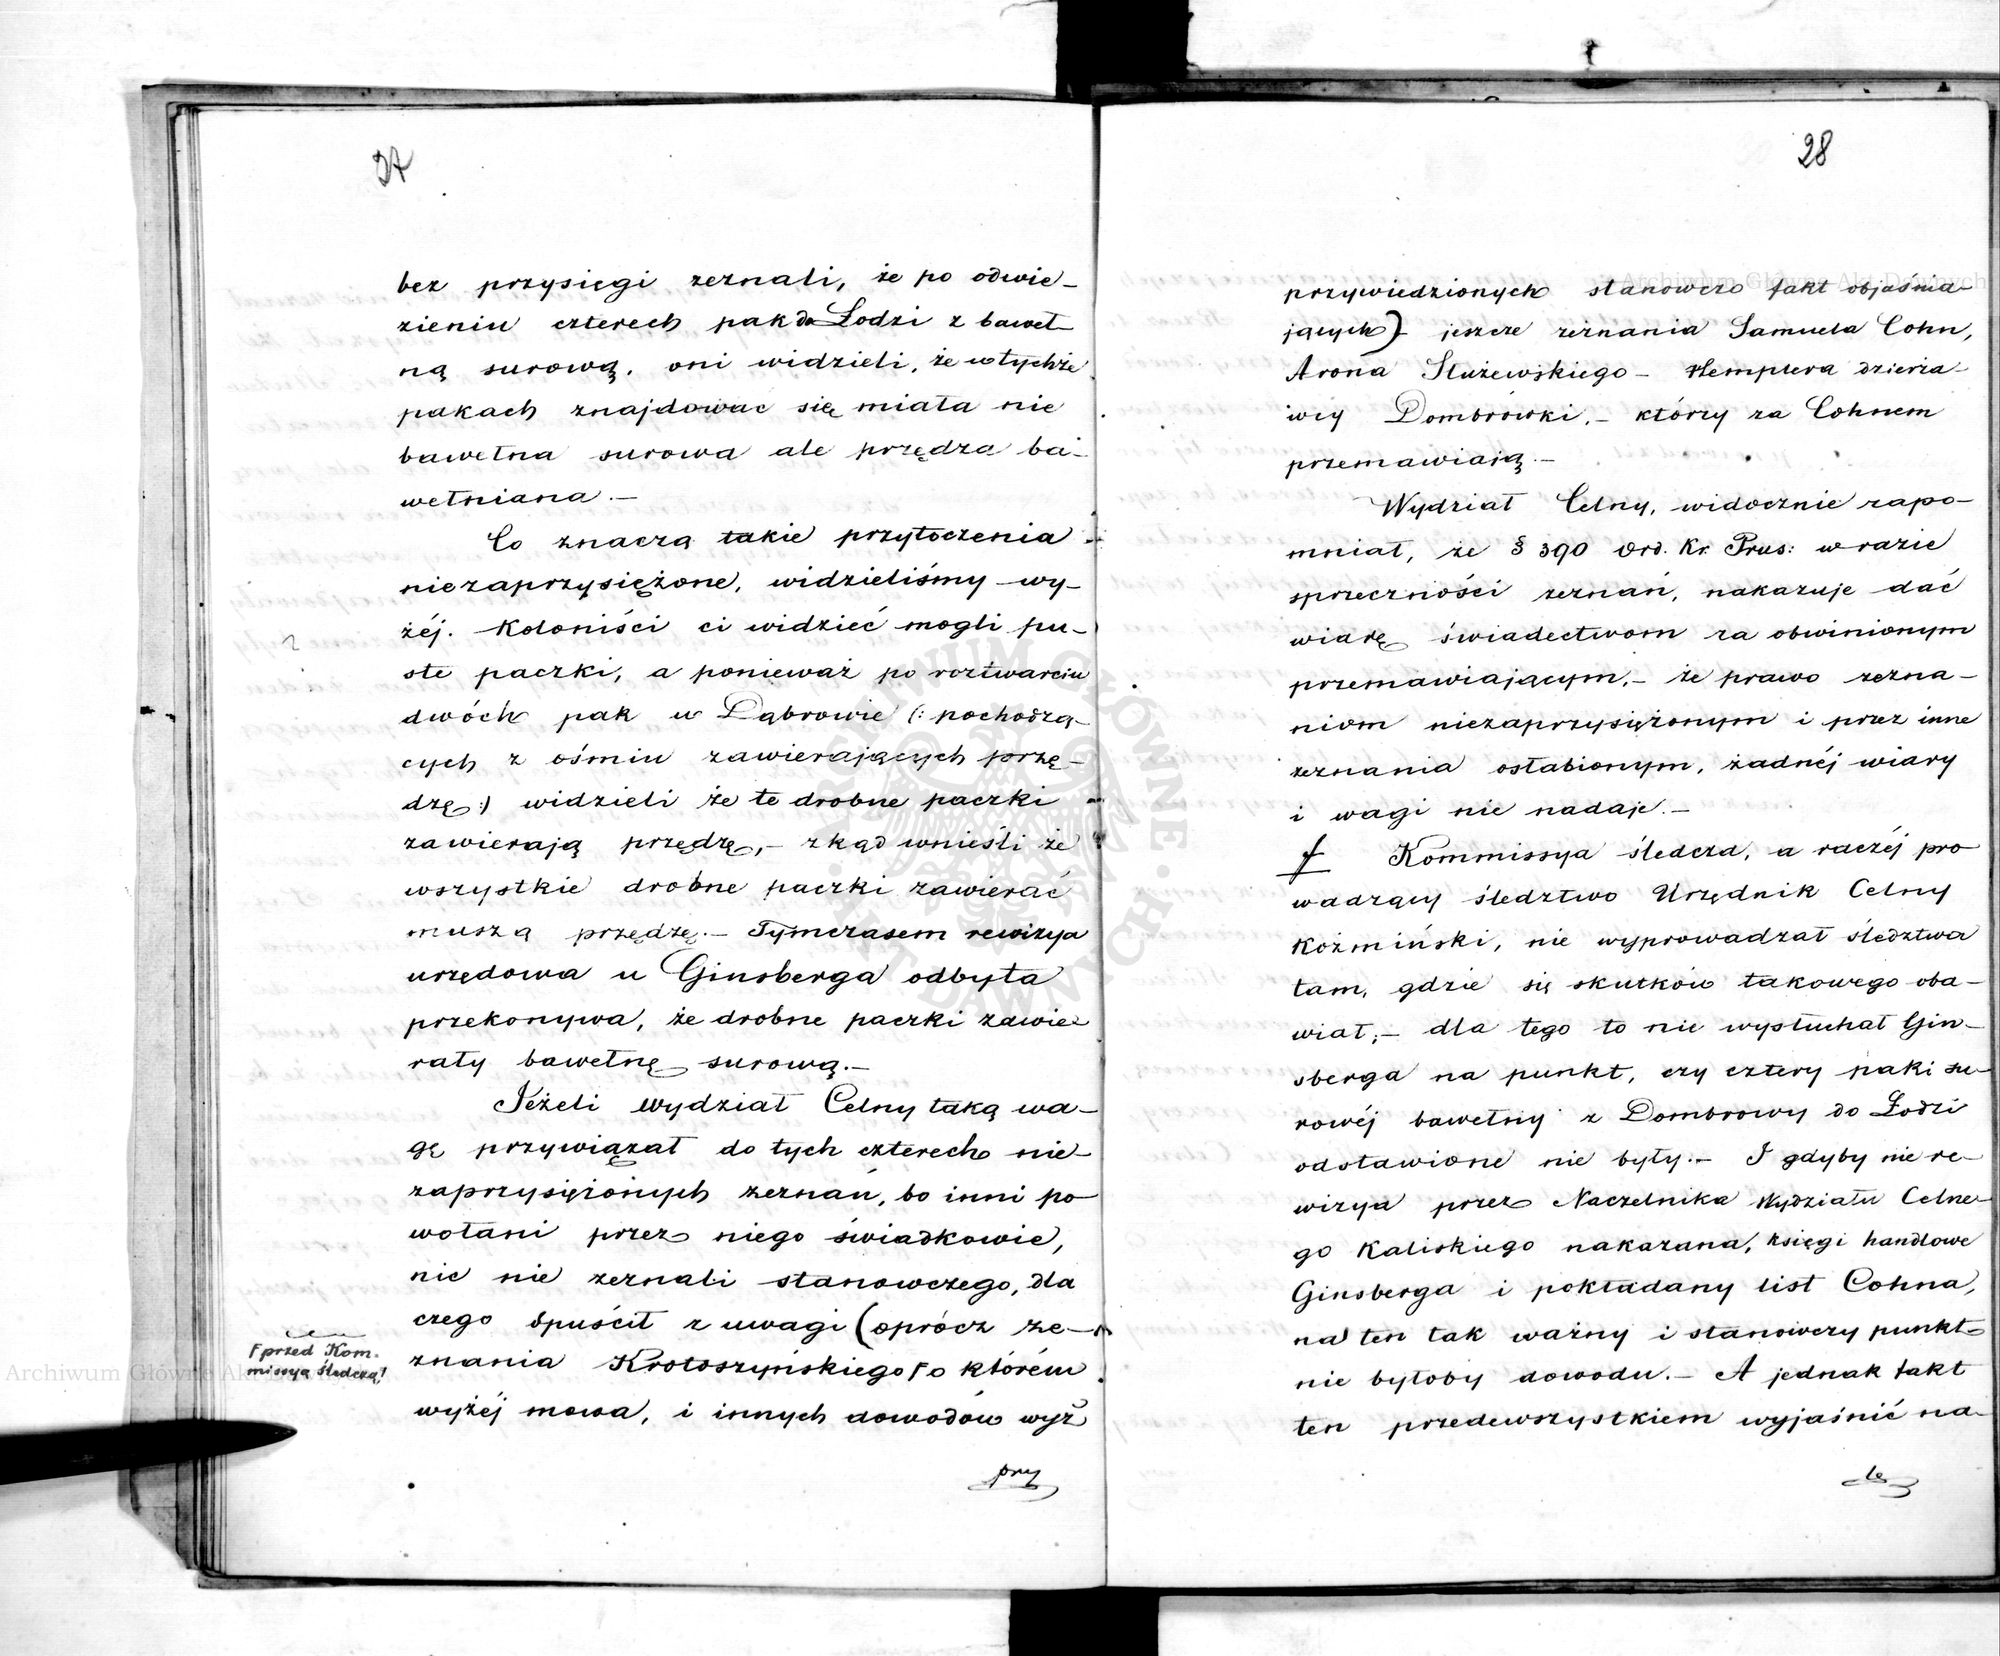 27
bez przysięgi zeznali, że po odwie-
zieniu czterech pak do Łodzi z baweł-
ną surową, oni widzieli, że w tychże
pakach znajdować się miała nie
bawełna surowa ale przędza ba-
wełniana.-
Co znaczą takie przytoczenia
niezaprzysiężone, widzieliśmy wy-
żéj. Koloniści ci widzieć mogli pu-
ste paczki, a ponieważ po roztwarciu
dwóch pak w Dąbrowie (: pochodzą-
cych z ośmiu zawierających przę-
dzę :) widzieli że te drobne paczki
zawierają przędzę,- zkąd wnieśli że
wszystkie drobne paczki zawierać
muszą przędzę.- Tymczasem rewizya
urzędowa u Ginsberga odbyta
przekonywa, że drobne paczki zawie-
rały bawełnę surową.-
Jeżeli Wydział Celny taką wa-
gę przywiązał do tych czterech nie-
zaprzysiężonych zeznań, bo inni po-
wołani przez niego świadkowie,
nic nie zeznali stanowczego, dla
czego opuścił z uwagi (oprócz ze-
znania Krotoszyńskiego Γ o którém
wyżéj mowa, i innych dowodów wyż
przy
Γ przed Kom-
missyą Śledczą!
28
przywiedzionych stanowczo fakt objaśnia-
jących) jeszcze zeznania Samuela Cohn,
Arona Służewskiego - Hemplera dzierża-
wcy Dombrówki,- którzy za Cohnem
przemawiają.-
Wydział Celny, widocznie zapo-
mniał, że § 390 Ord. Kr. Prus: w razie
sprzeczności zeznań, nakazuje dać
wiarę świadectwom za obwinionym
przemawiającym,- że prawo zezna-
niom niezaprzysiężonym i przez inne
zeznania osłabionym, żadnéj wiary
i wagi nie nadaje.-
f Kommissya śledcza, a raczéj pro
wadzący śledztwo Urzędnik Celny
Koźmiński, nie wyprowadzał śledztwa
tam, gdzie się skutków takowego oba-
wiał;- dla tego to nie wysłuchał Gin-
sberga na punkt, czy cztery paki su-
rowéj bawełny z Dombrowy do Łodzi
odstawione nie były.- I gdyby nie re-
wizya przez Naczelnika Wydziału Celne-
go Kaliskiego nakazana, księgi handlowe
Ginsberga i pokładany list Cohna,
na ten tak ważny i stanowczy punkt
nie byłoby dowodu.- A jednak fakt
ten przedewszystkiem wyjaśnić na-
le
Archiwum Główne Akt Dawnych
ARCHIWUM GŁÓWNE AKT DAWNYCH